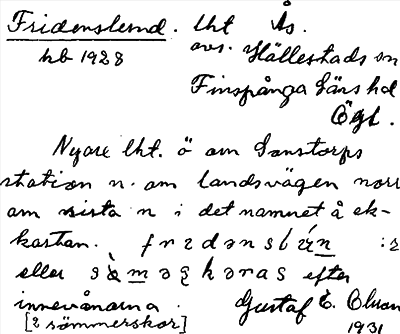 Fridenslund. lht Ås.
kb 1928 avs. Hällestads sn
Finspånga läns hd
Ögl.
Nyare lht. ö om Sonstorps
station n. om landsvägen norr
om sista n i det namnet å ek-
kartan. :s
eller efter
innevånarna. Gustaf E. Olsson
[2 sömmerskor] 1931